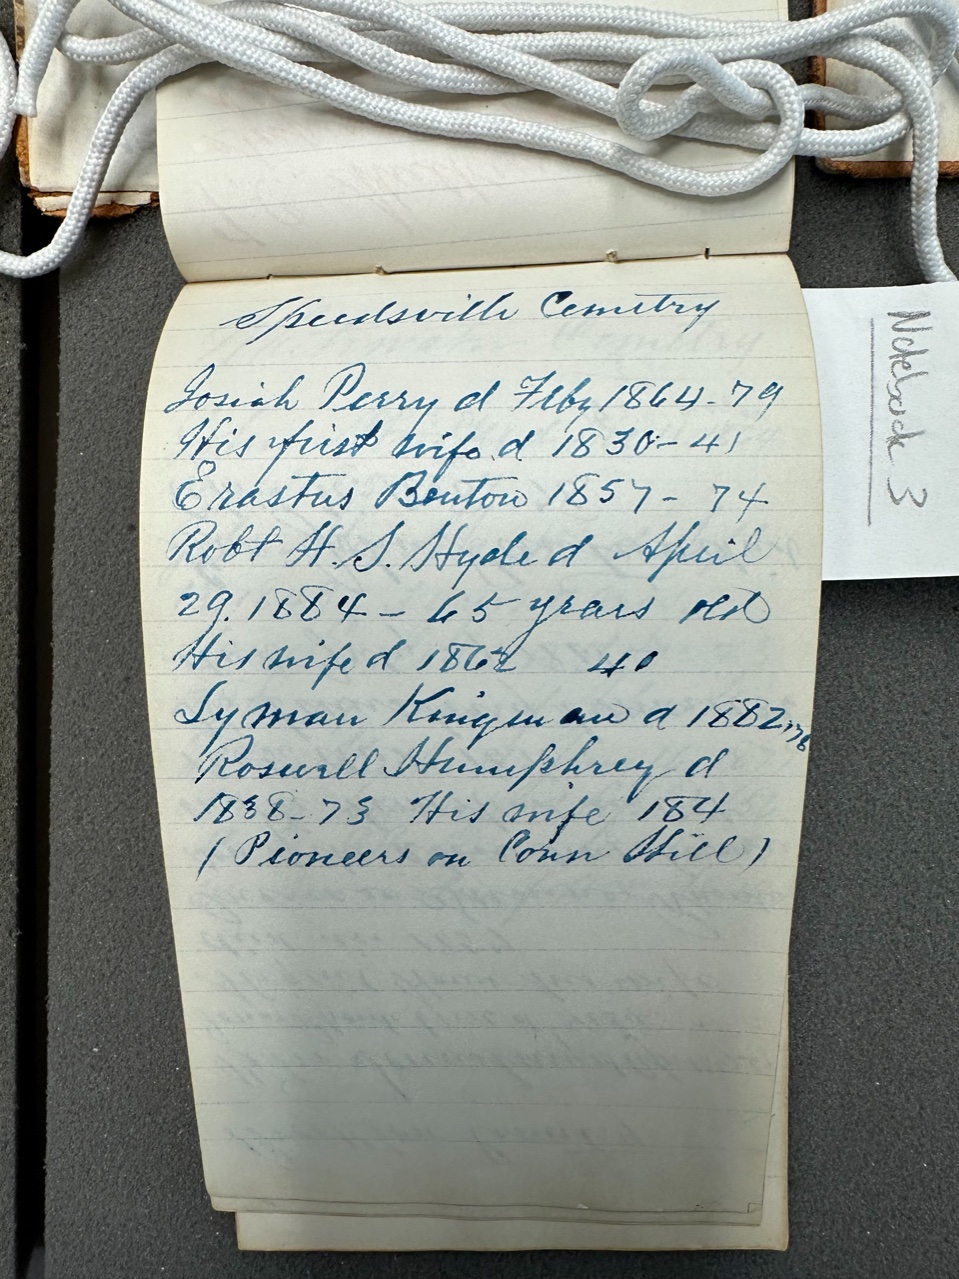 Speedsville Cemetry
Josiah Perry d Feby 1864-79
His first wife d 1830-41
Erastus Benton 1857- 74
Robt H. S. Hyde d April
29. 1884 - 65 years old
His wife d 1862 40
Lyman Kingman d 1882, 76
Roswell Humphrey d
1838-73 His wife 184
(Pioneers on Conn Hill)
Notebook 3